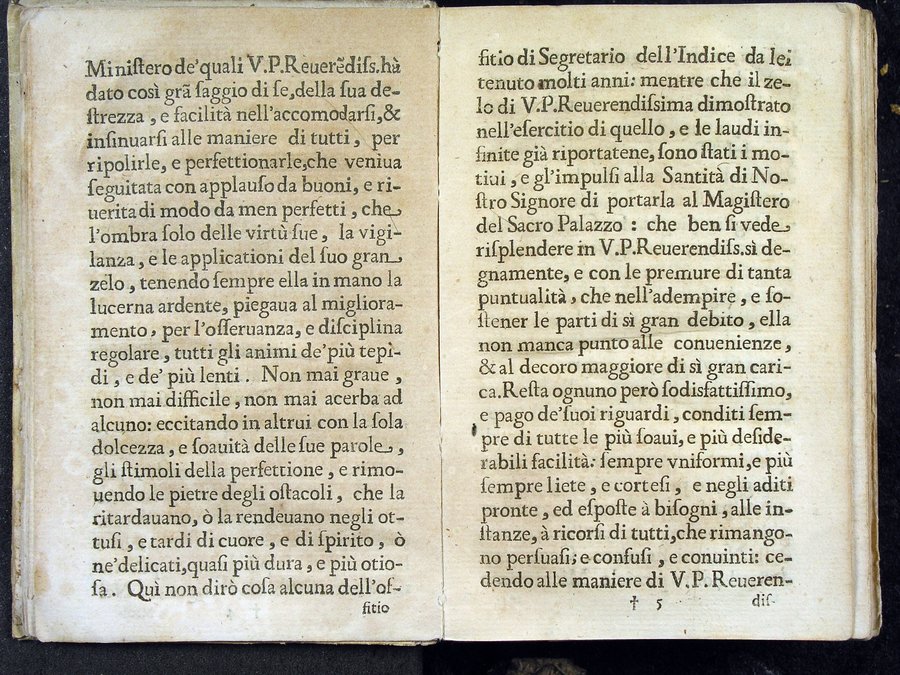 Miniſtero de'quali V.P.Reuerẽdiſs.hà
dato così grã ſaggio di ſe,della ſua de-
ſtrezza , e facilità nell'accomodarſi,&
inſinuarſi alle maniere di tutti , per
ripolirle, e perfettionarle,che veniua
ſeguitata con applauſo da buoni, e ri-
uerita di modo da men perfetti , che
l'ombra ſolo delle virtù ſue , la vigi-
lanza , e le applicationi del ſuo gran
zelo , tenendo ſempre ella in mano la
lucerna ardente, piegaua al migliora-
mento , per l'oſſeruanza, e diſciplina
regolare , tutti gli animi de'più tepì-
di , e de' più lenti . Non mai graue ,
non mai difficile , non mai acerba ad
alcuno: eccitando in altrui con la ſola
dolcezza , e ſoauità delle ſue parole ,
gli ſtimoli della perfettione , e rimo-
uendo le pietre degli oſtacoli , che la
ritardauano, ò la rendeuano negli ot-
tuſi , e tardi di cuore , e di ſpirito , ò
ne'delicati,quaſi più dura , e più otio-
ſa . Quì non dirò coſa alcuna dell'of-
fitio
fitio di Segretario dell'Indice da lei
tenuto molti anni: mentre che il ze-
lo di V.P.Reuerendiſsima dimoſtrato
nell'eſercitio di quello , e le laudi in-
finite già riportatene, ſono ſtati i mo-
tiui , e gl'impulſi alla Santità di No-
ſtro Signore di portarla al Magiſtero
del Sacro Palazzo : che ben ſi vede
riſplendere in V.P.Reuerendiſs.sì de-
gnamente, e con le premure di tanta
puntualità , che nell'adempire , e ſo-
ſtener le parti di sì gran debito , ella
non manca punto alle conuenienze ,
& al decoro maggiore di sì gran cari-
ca.Reſta ognuno però ſodisfattiſſimo,
e pago de'ſuoi riguardi , conditi ſem-
pre di tutte le più ſoaui, e più deſide-
rabili facilità: ſempre vniformi,e più
ſempre liete , e corteſi , e negli aditi
pronte , ed eſpoſte à biſogni , alle in-
ſtanze, à ricorſi di tutti,che rimango-
no perſuaſi; e confuſi , e conuinti: ce-
dendo alle maniere di V.P.Reueren-
† 5 diſ-